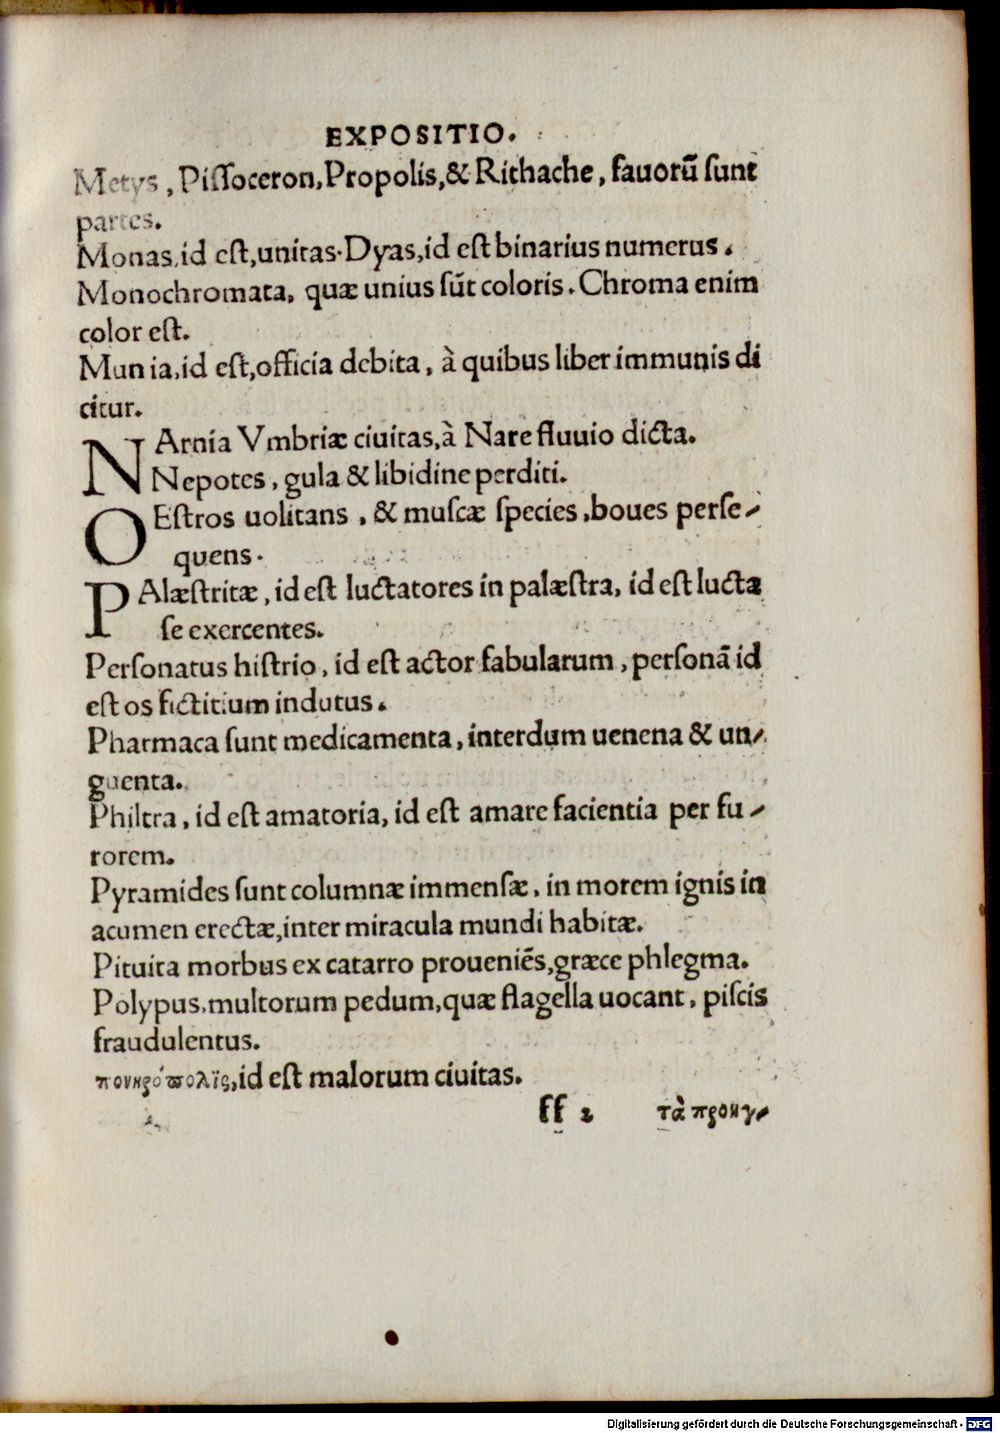 EXPOSITIO.
Metys, Piſſoceron, Propolis, & Rithache, fauorū ſunt
partes.
Monas, id eſt, unitas. Dyas, id eſt binarius numerus.
Monochromata, quæ unius ſūt coloris. Chroma enim
color eſt.
Munia, id eſt, officia debita, à quibus liber immunis di
citur.
NArnia Vmbriæ ciuitas, à Nare fluuio dicta.
Nepotes, gula & libidine perditi.
OEſtros uolitans, & muſcæ ſpecies, boues perſe-
quens.
PAlæſtritæ, id eſt luctatores in palæſtra, id eſt lucta
ſe exercentes.
Perſonatus hiſtrio, id eſt actor fabularum, perſonā id
eſt os fictitium indutus.
Pharmaca ſunt medicamenta, interdum uenena & un-
guenta.
Philtra, id eſt amatoria, id eſt amare facientia per fu-
rorem.
Pyramides ſunt columnæ immenſæ, in morem ignis in
acumen erectæ, inter miracula mundi habitæ.
Pituita morbus ex catarro proueniēs, græce phlegma.
Polypus, multorum pedum, quæ flagella uocant, piſcis
fraudulentus.
πονηρόπολϊς, id eſt malorum ciuitas.
ff 2 τὰ προηγ-
Digitalisierung gefördert durch die Deutsche Forschungsgemeinschaft - DFG